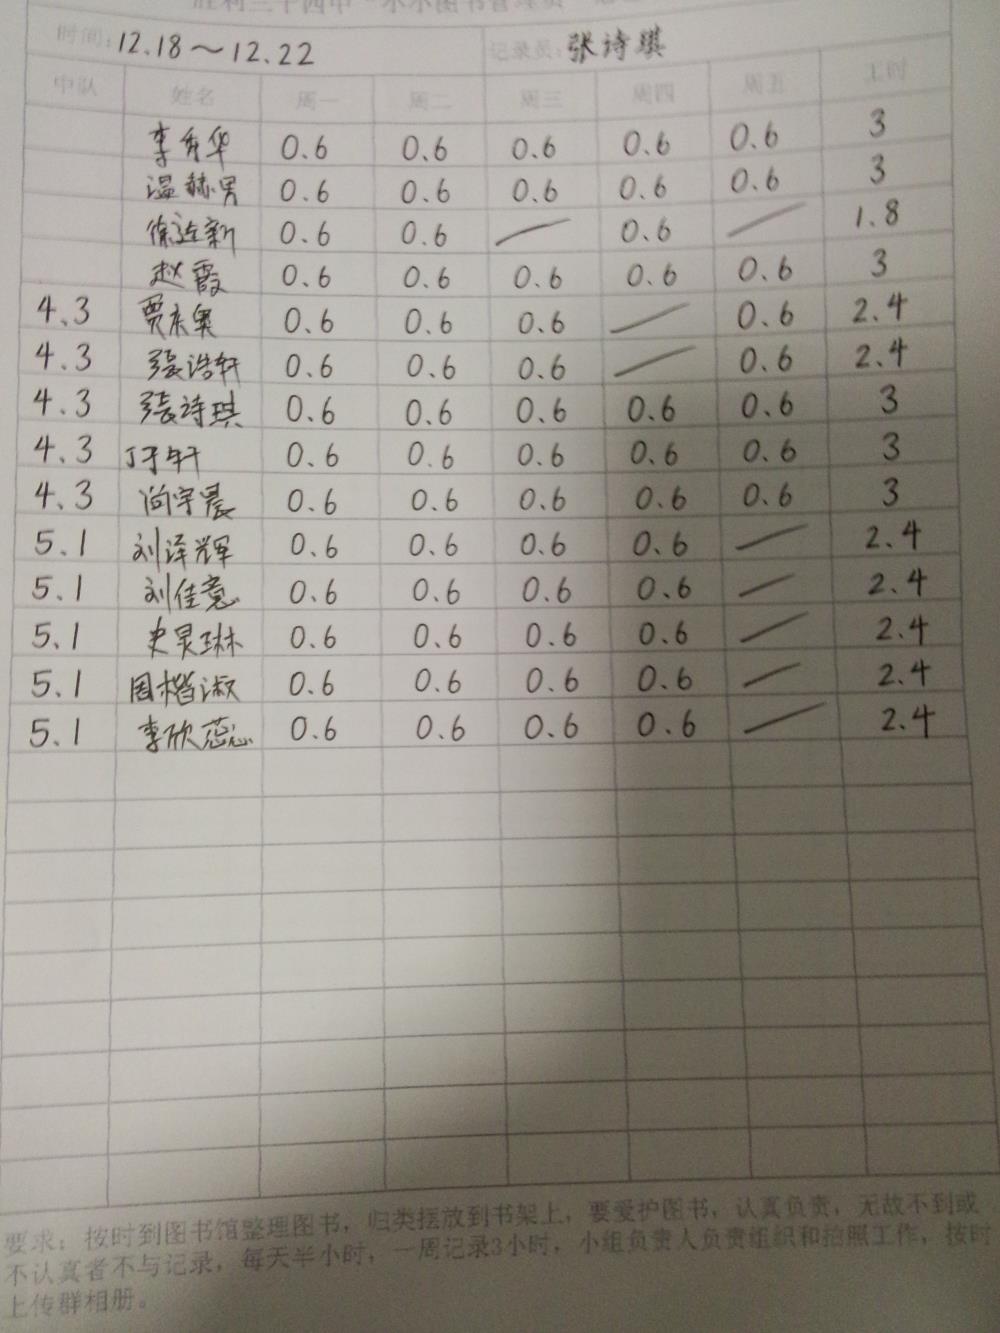 胜利三十四中“小小图书管理员”
时间:12.18～12.22 记录员:张诗琪
中队 姓名 周一 周二 周三 周四 周五 工时
李秀华 0.6 0.6 0.6 0.6 0.6 3
温赫男 0.6 0.6 0.6 0.6 0.6 3
徐连新 0.6 0.6 — 0.6 — 1.8
赵霞 0.6 0.6 0.6 0.6 0.6 3
4.3 贾东奥 0.6 0.6 0.6 — 0.6 2.4
4.3 张浩轩 0.6 0.6 0.6 — 0.6 2.4
4.3 张诗琪 0.6 0.6 0.6 0.6 0.6 3
4.3 丁子轩 0.6 0.6 0.6 0.6 0.6 3
4.3 尚宇晨 0.6 0.6 0.6 0.6 0.6 3
5.1 刘泽辉 0.6 0.6 0.6 0.6 — 2.4
5.1 刘佳意 0.6 0.6 0.6 0.6 — 2.4
5.1 史炅琳 0.6 0.6 0.6 0.6 — 2.4
5.1 周楷淑 0.6 0.6 0.6 0.6 — 2.4
5.1 李欣蕊 0.6 0.6 0.6 0.6 — 2.4
要求：按时到图书馆整理图书，归类摆放到书架上，要爱护图书，认真负责，无故不到或
不认真者不与记录，每天半小时，一周记录3小时，小组负责人负责组织和拍照工作，按时
上传群相册。